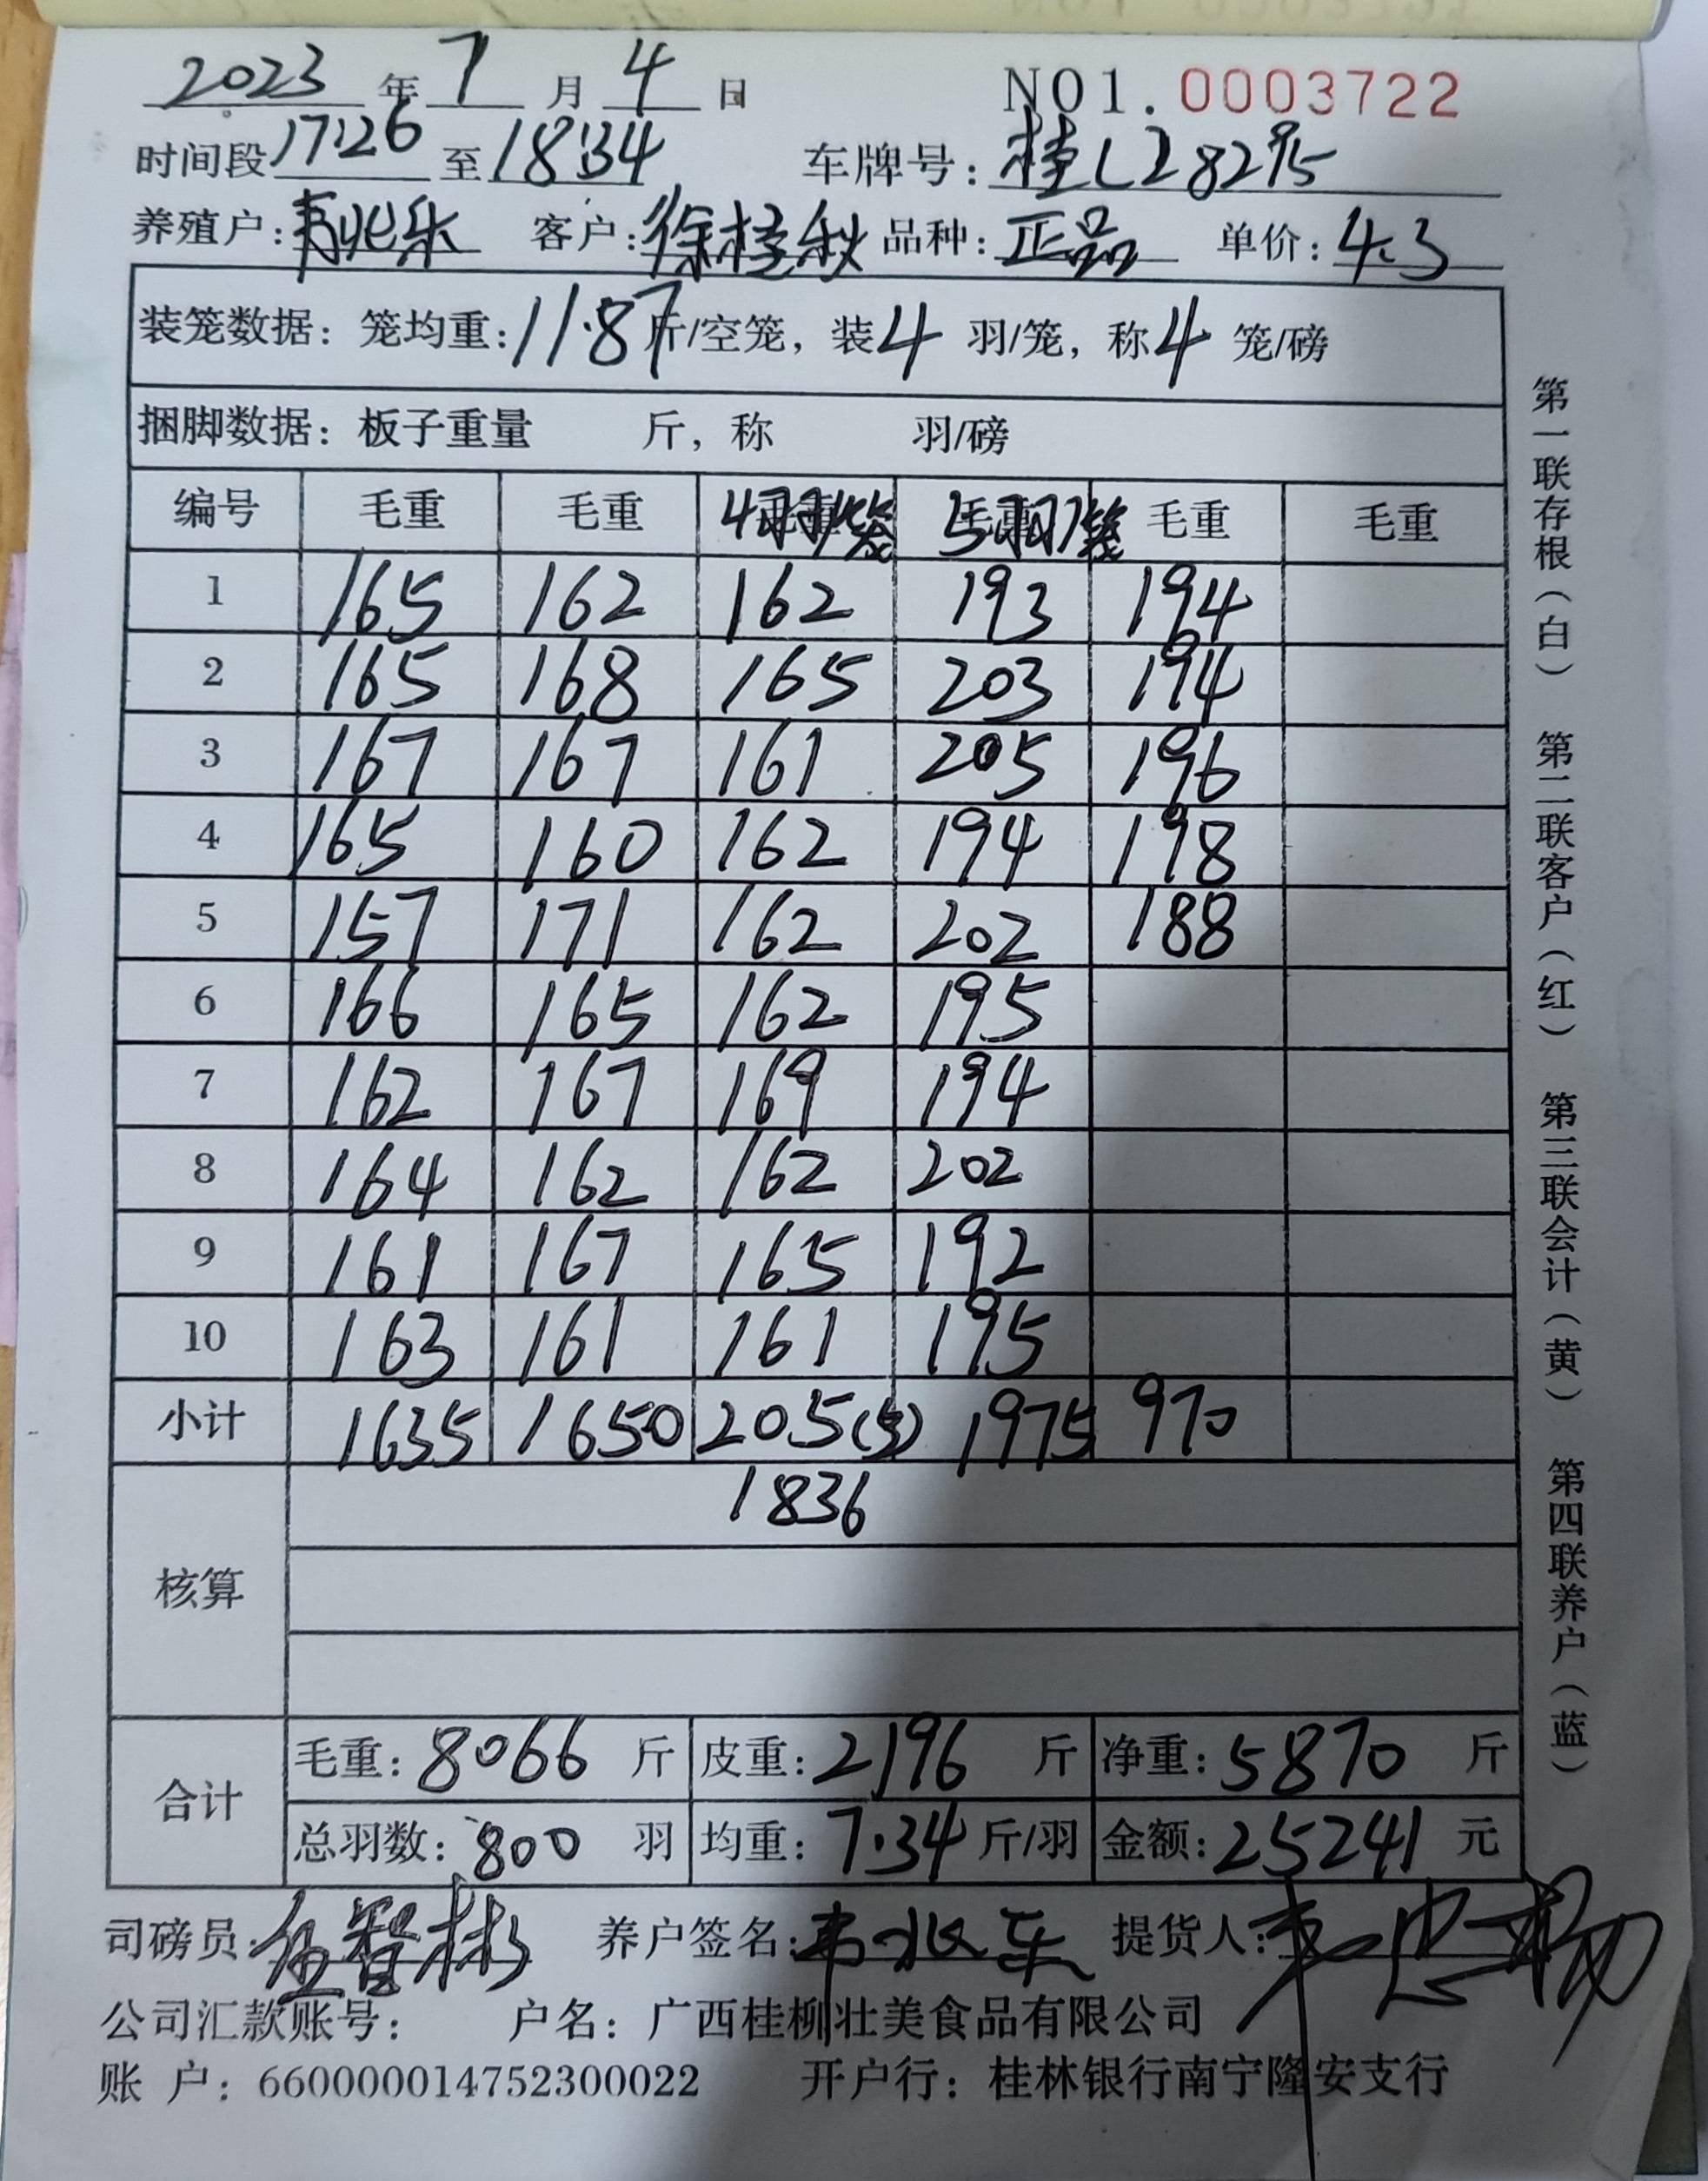 2023 年 7 月 4 日 NO1. 0003722
时间段 17:26 至 18:34 车牌号: 桂L28295
养殖户: 韦兆东 客户: 徐桂秋 品种: 正品 单价: 4.3
装笼数据: 笼均重: 11.87 斤/空笼, 装 4 羽/笼, 称 4 笼/磅
捆脚数据: 板子重量 斤, 称 羽/磅
编号 毛重 毛重 4羽/笼 5羽/笼 毛重 毛重
1 165 162 162 193 194
2 165 168 165 203 194
3 167 167 161 205 196
4 165 160 162 194 198
5 157 171 162 202 188
6 166 165 162 195
7 162 167 169 194
8 164 162 162 202
9 161 167 165 192
10 163 161 161 195
小计 1635 1650 205 1975 970
1836
核算
合计
毛重: 8066 斤 皮重: 2196 斤 净重: 5870 斤
总羽数: 800 羽 均重: 7.34 斤/羽 金额: 25241 元
司磅员: 伍智彬 养户签名: 韦兆东 提货人:
公司汇款账号: 户名: 广西桂柳壮美食品有限公司
账 户: 660000014752300022 开户行: 桂林银行南宁隆安支行
第一联存根(白) 第二联客户(红) 第三联会计(黄) 第四联养户(蓝)